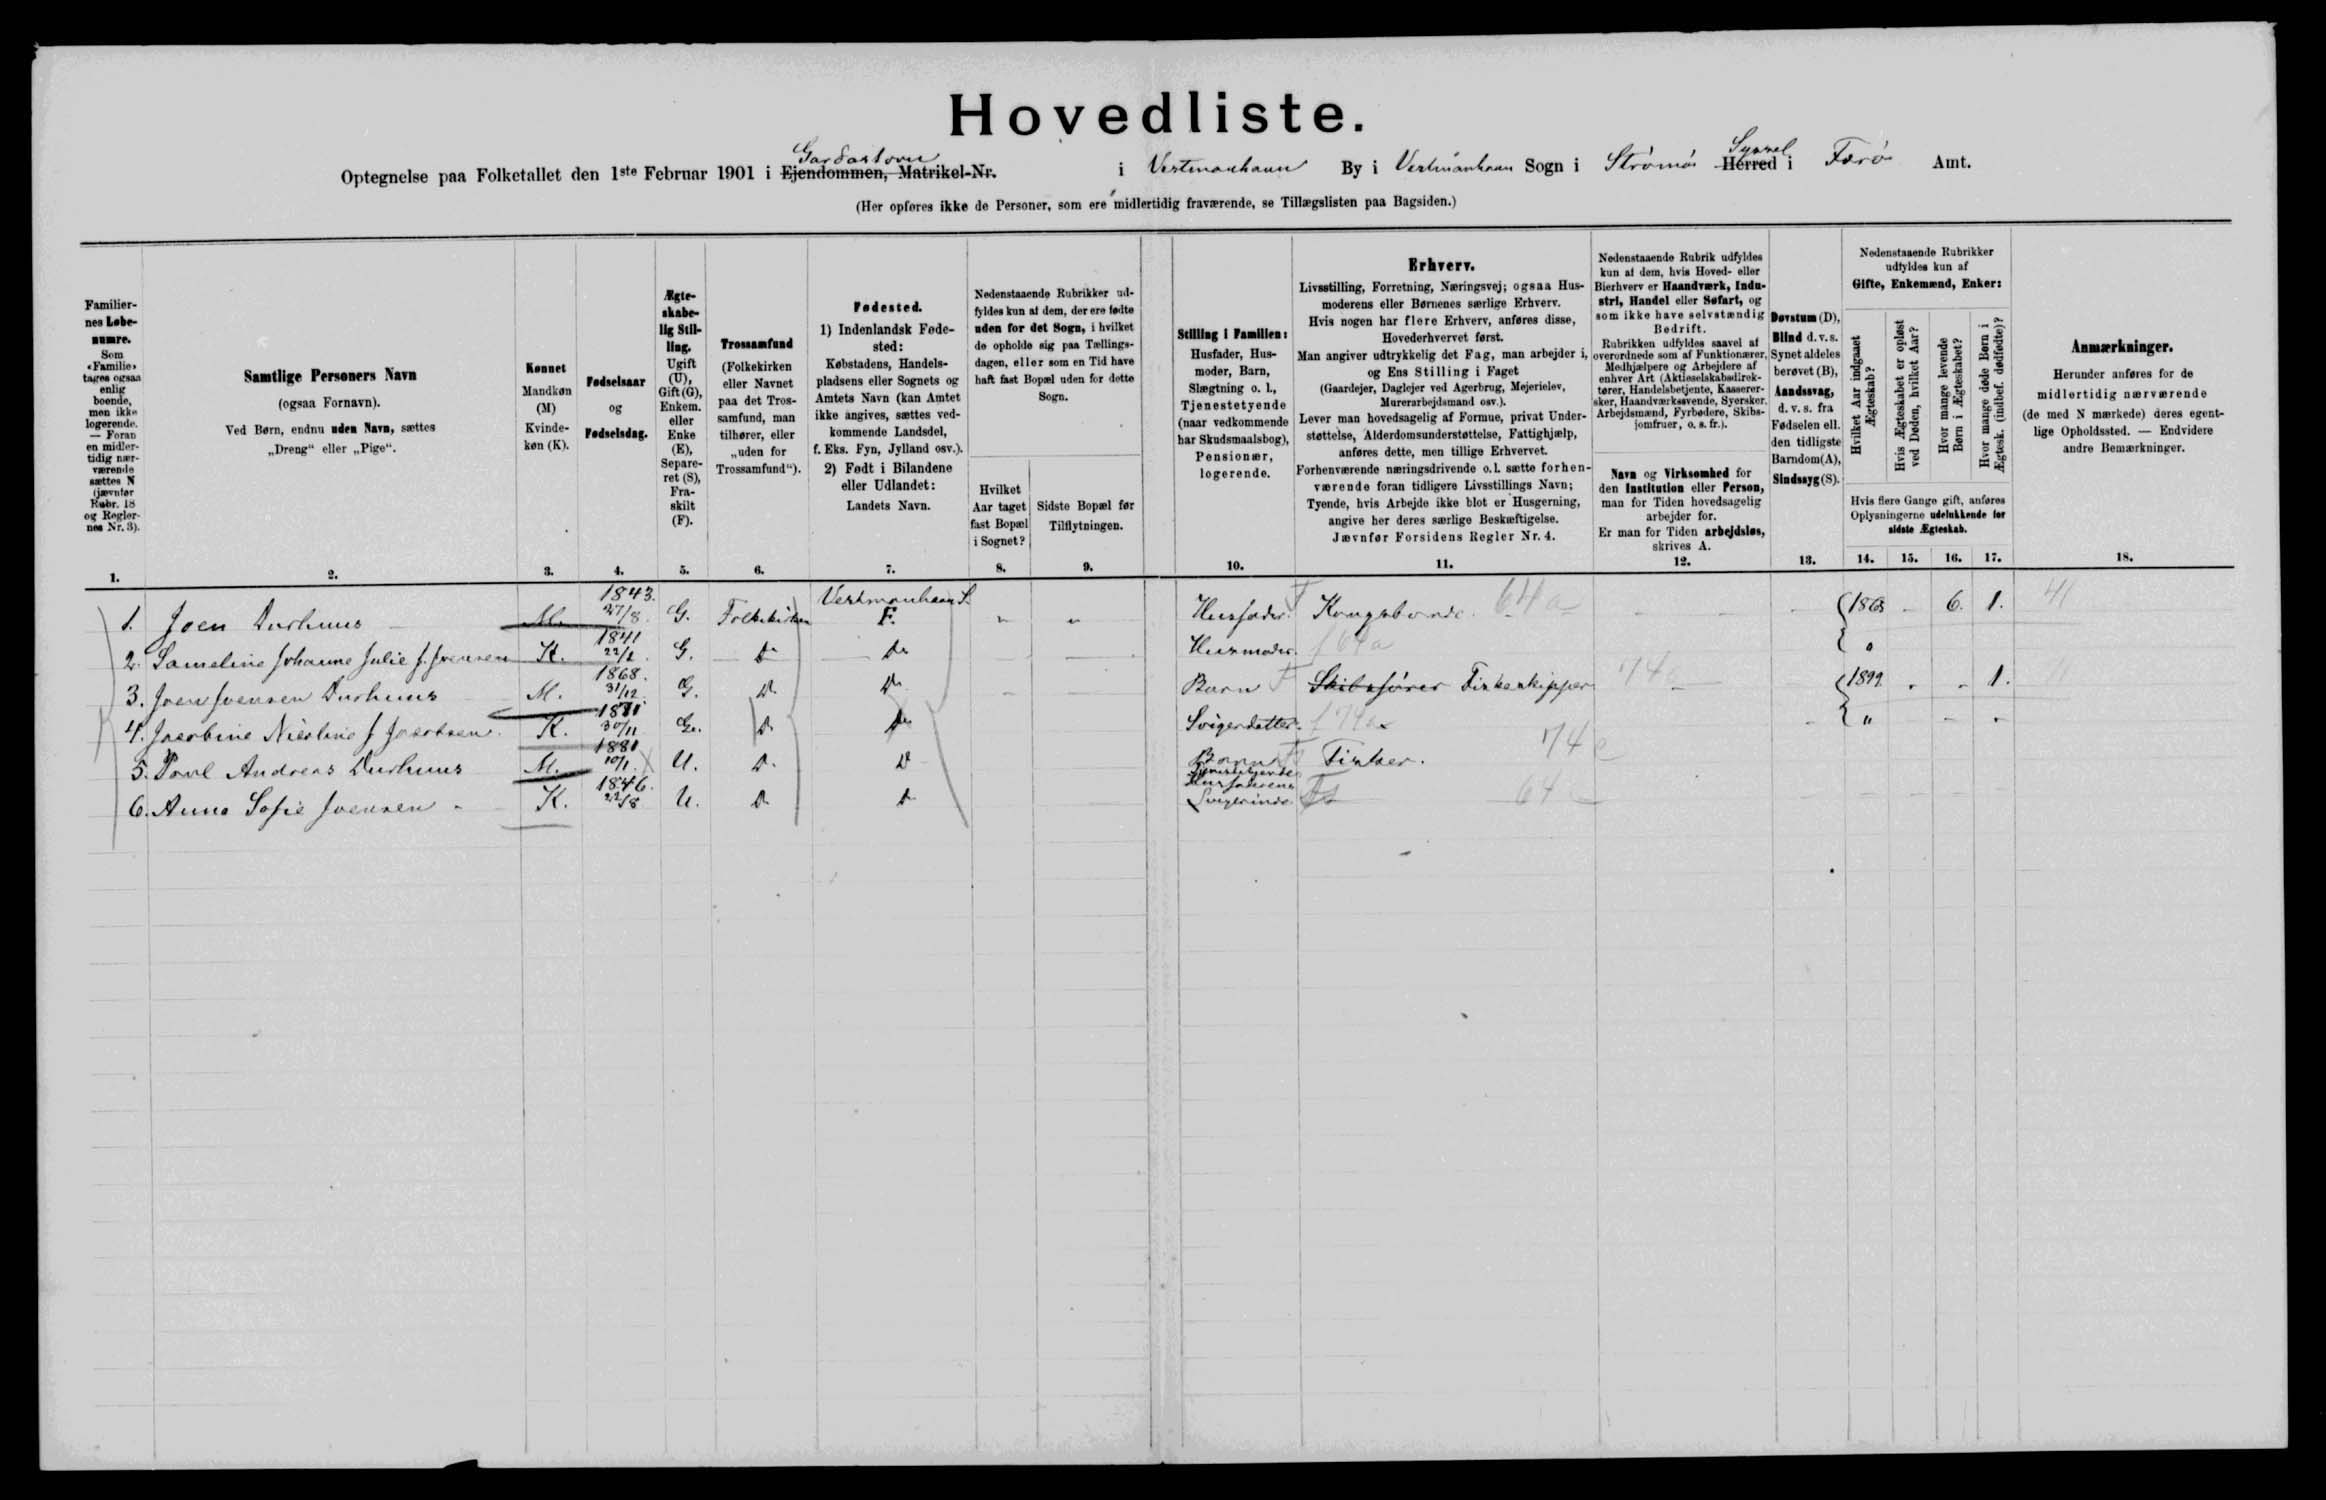 Hovedliste.
Optegnelse paa Folketallet den 1ste Februar 1901 i Ejendommen, Matrikel-Nr. Gardastovu i Vestmanhavn By i Vestmanhavn Sogn i Strömö Herred Syssel i Færö Amt.
(Her opføres ikke de Personer, som ere midlertidig fraværende, se Tillægslisten paa Bagsiden.)
Familier-
nes Løbe-
numre.
Som
«Familie»
tages ogsaa
enlig
boende,
men ikke
logerende.
— Foran
en midler-
tidig nær-
værende
sættes N
(jævnfør
Rubr. 18
og Regler-
nes Nr. 3).
1.
Samtlige Personers Navn
(ogsaa Fornavn).
Ved Børn, endnu uden Navn, sættes
„Dreng“ eller „Pige“.
2.
Kønnet
Mandkøn
(M)
Kvinde-
køn (K).
3.
Fødselsaar
og
Fødselsdag.
4.
Ægte-
skabe-
lig Stil-
ling.
Ugift
(U),
Gift (G),
Enkem.
eller
Enke
(E),
Separe-
ret (S),
Fra-
skilt
(F).
5.
Trossamfund
(Folkekirken
eller Navnet
paa det Tros-
samfund, man
tilhører, eller
„uden for
Trossamfund“).
6.
Fødested.
1) Indenlandsk Føde-
sted:
Købstadens, Handels-
pladsens eller Sognets og
Amtets Navn (kan Amtet
ikke angives, sættes ved-
kommende Landsdel,
f. Eks. Fyn, Jylland osv.).
2) Født i Bilandene
eller Udlandet:
Landets Navn.
7.
Nedenstaaende Rubrikker ud-
fyldes kun af dem, der ere fødte
uden for det Sogn, i hvilket
de opholde sig paa Tællings-
dagen, eller som en Tid have
haft fast Bopæl uden for dette
Sogn.
Hvilket
Aar taget
fast Bopæl
i Sognet?
8.
Sidste Bopæl før
Tilflytningen.
9.
Stilling i Familien:
Husfader, Hus-
moder, Barn,
Slægtning o. l.,
Tjenestetyende
(naar vedkommende
har Skudsmaalsbog),
Pensionær,
logerende.
10.
Erhverv.
Livsstilling, Forretning, Næringsvej; ogsaa Hus-
moderens eller Børnenes særlige Erhverv.
Hvis nogen har flere Erhverv, anføres disse,
Hovederhvervet først.
Man angiver udtrykkelig det Fag, man arbejder i,
og Ens Stilling i Faget
(Gaardejer, Daglejer ved Agerbrug, Mejerielev,
Murerarbejdsmand osv.).
Lever man hovedsagelig af Formue, privat Under-
støttelse, Alderdomsunderstøttelse, Fattighjælp,
anføres dette, men tillige Erhvervet.
Forhenværende næringsdrivende o.l. sætte forhen-
værende foran tidligere Livsstillings Navn;
Tyende, hvis Arbejde ikke blot er Husgerning,
angive her deres særlige Beskæftigelse.
Jævnfør Forsidens Regler Nr. 4.
11.
Nedenstaaende Rubrik udfyldes
kun af dem, hvis Hoved- eller
Bierhverv er Haandværk, Indu-
stri, Handel eller Søfart, og
som ikke have selvstændig
Bedrift.
Rubrikken udfyldes saavel af
overordnede som af Funktionærer,
Medhjælpere og Arbejdere af
enhver Art (Aktieselskabsdirek-
tører, Handelsbetjente, Kasserer-
sker, Haandværkssvende, Syersker,
Arbejdsmænd, Fyrbødere, Skibs-
jomfruer, o. s. fr.).
Navn og Virksomhed for
den Institution eller Person,
man for Tiden hovedsagelig
arbejder for.
Er man for Tiden arbejdsløs,
skrives A.
12.
Døvstum (D),
Blind d. v. s.
Synet aldeles
berøvet (B),
Aandssvag,
d. v. s. fra
Fødselen ell.
den tidligste
Barndom (A),
Sindssyg (S).
13.
Nedenstaaende Rubrikker
udfyldes kun af
Gifte, Enkemænd, Enker:
Hvilket Aar indgaaet
Ægteskab?
Hvis Ægteskabet er opløst
ved Døden, hvilket Aar?
Hvor mange levende
Børn i Ægteskabet?
Hvor mange døde Børn i
Ægtesk. (indbef. dødfødte)?
Hvis flere Gange gift, anføres
Oplysningerne udelukkende for
sidste Ægteskab.
14. 15. 16. 17.
Anmærkninger.
Herunder anføres for de
midlertidig nærværende
(de med N mærkede) deres egent-
lige Opholdssted. — Endvidere
andre Bemærkninger.
18.
1. Joen Durhuus M. 1843. 27/8. G. Folkekirken Vestmanhavn S. F. " " Husfader. F Kongsbonde. 64a 6. 1. 41
2. Sameline Johanne Julie f. Joensen K. 1841 G. Do Do Husmoder. f 64a "
3. Joen Joensen Durhuus M. 1868. 31/12. G. Do Do Barn F Skibsfører Fiskeskipper 74 1899 " " 1.
4. Jacobine Nicoline f Jacobsen. K. 30/11 G. Do Do Svigerdatter. f 74a "
5. Poul Andreas Durhuus M. 1881 10/1. U. Do Do Barn F Fisker. 74
6. Anna Sofie Joensen K. 1846. 22/8 U. Do Do Husfaderens Svigerinde 64